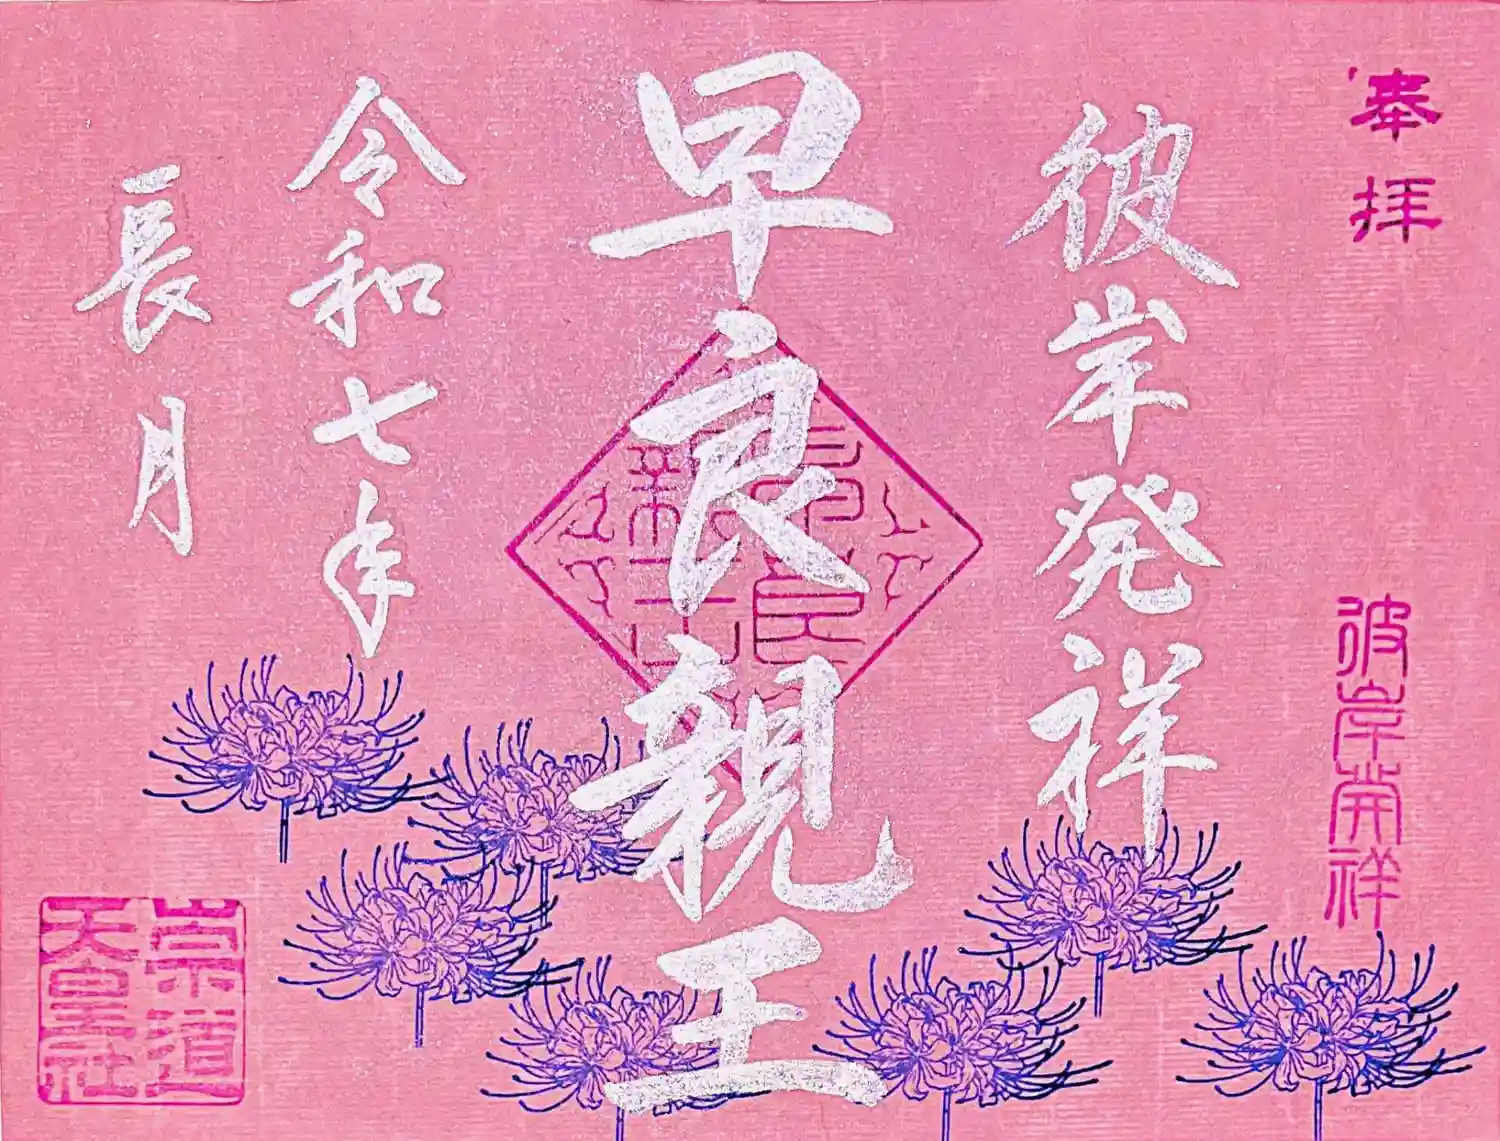 奉拝
彼岸発祥
彼岸開祥
早良親王
早良親王
令和七年
長月
崇道
天皇社